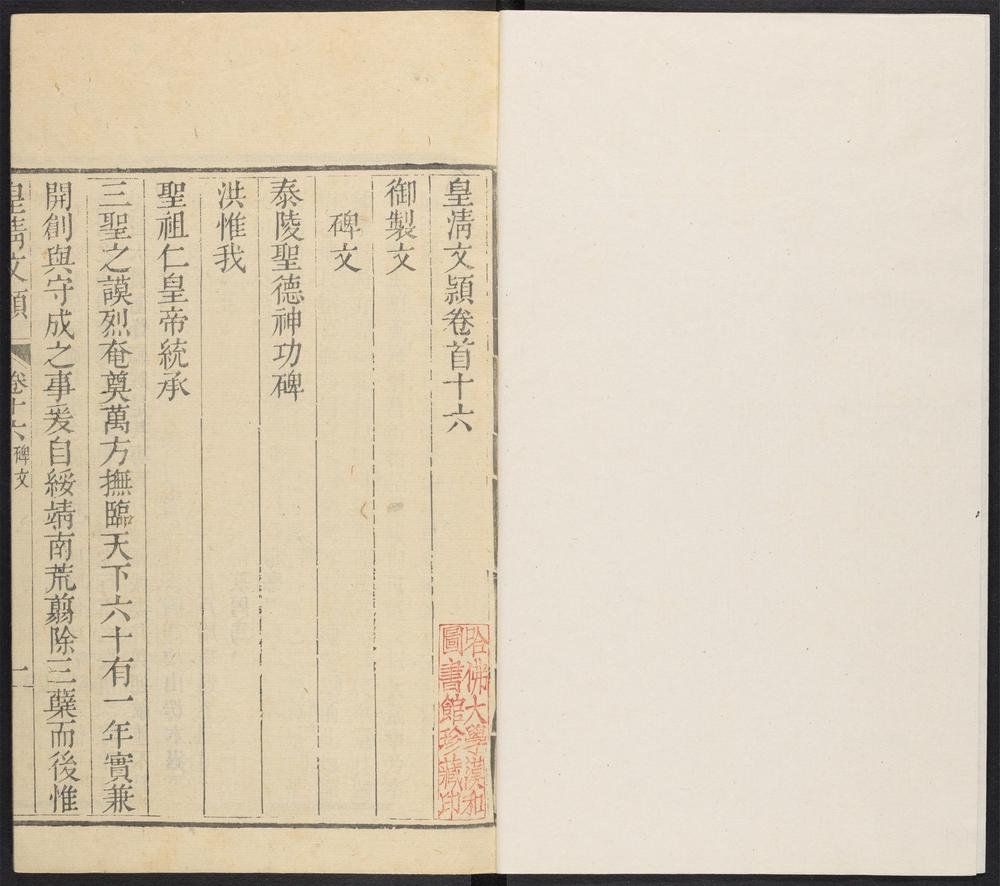 皇淸文穎卷首十六
御製文
碑文
泰陵聖德神功碑
洪惟我
聖祖仁皇帝統承
三聖之謨烈奄奠萬方撫臨天下六十有一年實兼
開創與守成之事爰自綏靖南荒翦除三蘖而後惟
皇淸文穎
卷十六
碑文
一
哈佛大學漢和
圖書館珍藏印